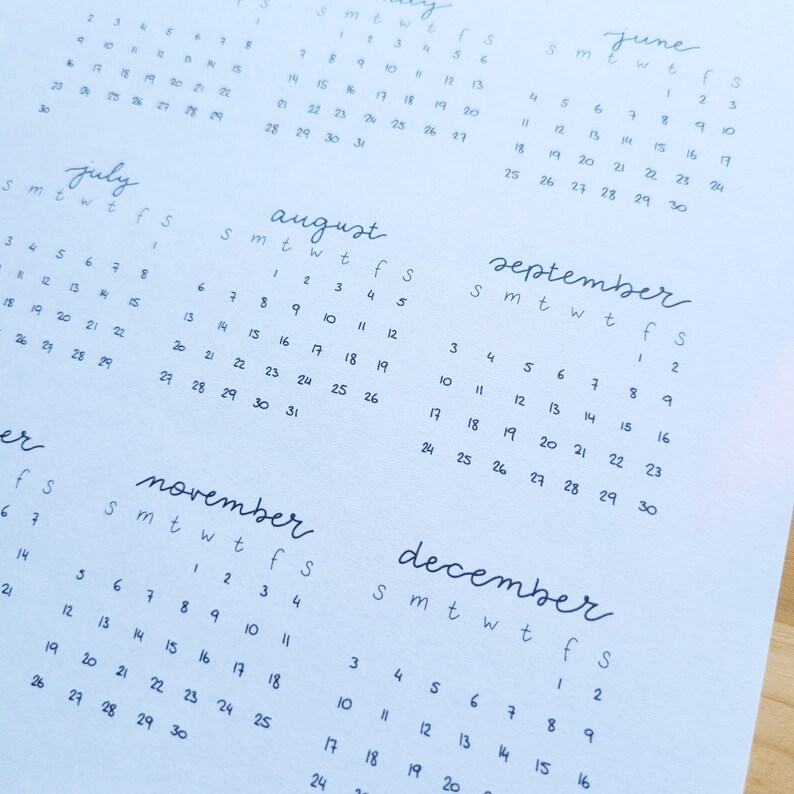 f s
1
2 3 4 5 6 7 8
9 10 11 12 13 14 15
16 17 18 19 20 21 22
23 24 25 26 27 28 29
30
s m t w t f s
1 2 3 4 5 6
7 8 9 10 11 12 13
14 15 16 17 18 19 20
21 22 23 24 25 26 27
28 29 30 31
june
s m t w t f s
1 2 3
4 5 6 7 8 9 10
11 12 13 14 15 16 17
18 19 20 21 22 23 24
25 26 27 28 29 30
july
s m t w t f s
1
3 4 5 6 7 8
11 12 13 14 15
18 19 20 21 22
26 27 28 29
august
s m t w t f s
1 2 3 4 5
6 7 8 9 10 11 12
13 14 15 16 17 18 19
20 21 22 23 24 25 26
27 28 29 30 31
september
s m t w t f s
1 2
3 4 5 6 7 8 9
10 11 12 13 14 15 16
17 18 19 20 21 22 23
24 25 26 27 28 29 30
er
f s
6 7
14
21
november
s m t w t f s
1 2 3 4
5 6 7 8 9 10 11
12 13 14 15 16 17 18
19 20 21 22 23 24 25
26 27 28 29 30
december
s m t w t f s
1 2
3 4 5 6 7 8 9
10 11 12 13 14 15 16
17 18 19 20
24